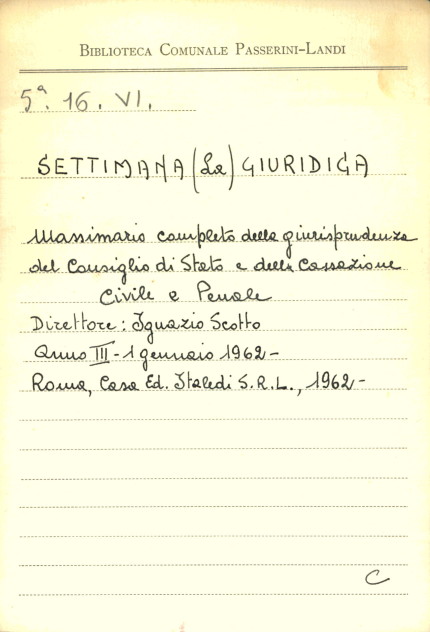 BIBLIOTECA COMUNALE PASSERINI-LANDI
5ª. 16. VI.
SETTIMANA (La) GIURIDICA
Massimario completo della giurisprudenza
del Consiglio di Stato e della Cassazione
Civile e Penale
Direttore: Ignazio Scotto
Anno III - 1 gennaio 1962 -
Roma, Casa Ed. Italedi S.R.L., 1962 -
C